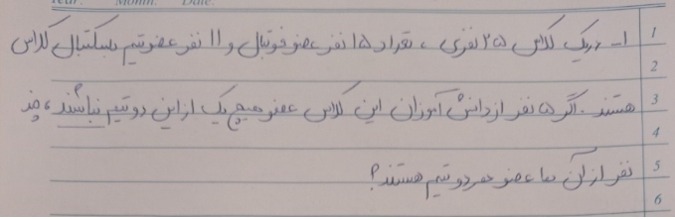 Year: Month: Date:
1 ۱- در یک کلاس ۲۵ نفری، تعداد ۱۵ نفر عضو فوتبال و ۱۱ نفر عضو تیم بسکتبال کلاس
2
3 هستند. اگر ۵ نفر از دانش آموزان این کلاس عضو هیچ یک از این دو تیم نباشند، چند
4
5 نفر از آن ها عضو هر دو تیم هستند؟
6